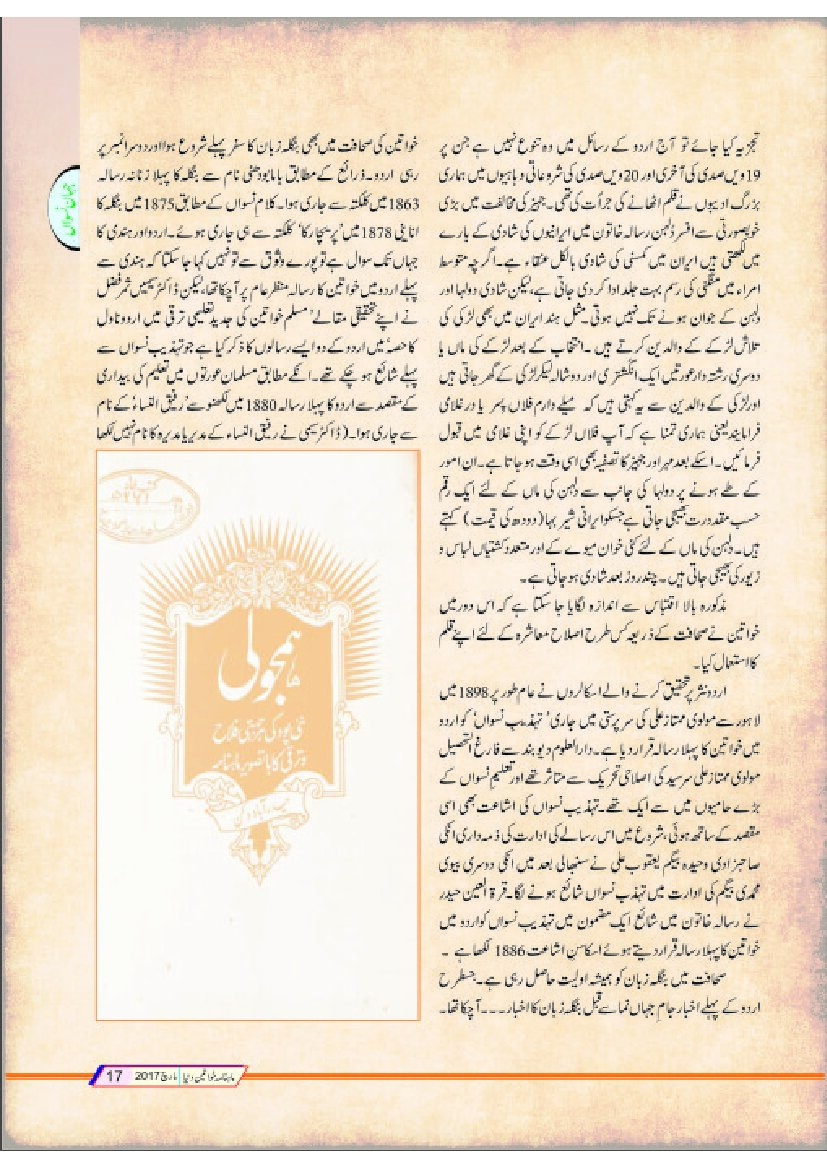 تجزیہ کیا جائے تو آج اردو کے رسائل میں وہ تنوع نہیں ہے جن پر
19ویں صدی کی آخری اور 20ویں صدی کی شروعاتی دہائیوں میں ہماری
بزرگ ادیبوں نے قلم اٹھانے کی جرأت کی تھی۔ جہیز کی مخالفت میں بڑی
خوبصورتی سے افسر دلہن رسالہ خاتون میں ایرانیوں کی شادی کے بارے
میں لکھتی ہیں ایران میں کمسنی کی شادی بالکل عنقاء ہے۔ اگرچہ متوسط
امراء میں منگنی کی رسم بہت جلد ادا کر دی جاتی ہے،لیکن شادی دولہا اور
دلہن کے جوان ہونے تک نہیں ہوتی۔ مثل ہند ایران میں بھی لڑکی کی
تلاش لڑکے کے والدین کرتے ہیں ۔ انتخاب کے بعد لڑکے کی ماں یا
دوسری رشتہ دار عورتیں ایک انگشتری اور دوشالہ لیکر لڑکی کے گھر جاتی ہیں
اور لڑکی کے والدین سے یہ کہتی ہیں کہ میلے دارم فلاں پسر یا در غلامی
فرمایند یعنی ہماری تمنا ہے کہ آپ فلاں لڑکے کو اپنی غلامی میں قبول
فرمائیں ۔ اسکے بعد مہر اور جہیز کا تصفیہ بھی اسی وقت ہو جاتا ہے ۔ ان امور
کے طے ہونے پر دولہا کی جانب سے دلہن کی ماں کے لئے ایک رقم
حسب مقدرت بھیجی جاتی ہے جسکو ایرانی شیر بہا (دودھ کی قیمت) کہتے
ہیں۔ دلہن کی ماں کے لئے کئی خوان میوے کے اور متعدد کشتیاں لباس و
زیور کی بھیجی جاتی ہیں ۔ چند روز بعد شادی ہو جاتی ہے۔
مذکورہ بالا اقتباس سے اندازہ لگایا جا سکتا ہے کہ اس دور میں
خواتین نے صحافت کے ذریعہ کس طرح اصلاح معاشرہ کے لئے اپنے قلم
کا استعمال کیا۔
اردو نثر پر تحقیق کرنے والے اسکالروں نے عام طور پر 1898 میں
لاہور سے مولوی ممتاز علی کی سرپرستی میں جاری ’تہذیب نسواں‘ کو اردو
میں خواتین کا پہلا رسالہ قرار دیا ہے۔ دارالعلوم دیوبند سے فارغ التحصیل
مولوی ممتاز علی سرسید کی اصلاحی تحریک سے متاثر تھے اور تعلیم نسواں کے
بڑے حامیوں میں سے ایک تھے۔ تہذیب نسواں کی اشاعت بھی اسی
مقصد کے ساتھ ہوئی، شروع میں اس رسالے کی ادارت کی ذمہ داری انکی
صاحبزادی وحیدہ بیگم یعقوب علی نے سنبھالی بعد میں انکی دوسری بیوی
محمدی بیگم کی ادارت میں تہذب نسواں شائع ہونے لگا۔ قرۃ العین حیدر
نے رسالہ خاتون میں شائع ایک مضمون میں تہذیب نسواں کو اردو میں
خواتین کا پہلا رسالہ قرار دیتے ہوئے اسکا سن اشاعت 1886 لکھا ہے ۔
صحافت میں بنگلہ زبان کو ہمیشہ اولیت حاصل رہی ہے۔ جسطرح
اردو کے پہلے اخبار جام جہاں نما سے قبل بنگلہ زبان کا اخبار۔۔۔ آچکا تھا۔
خواتین کی صحافت میں بھی بنگلہ زبان کا سفر پہلے شروع ہوا اور دوسرا نمبر پر
رہی اردو۔ ذرائع کے مطابق بامابودھنی نام سے بنگلہ کا پہلا زنانہ رسالہ
1863 میں کلکتہ سے جاری ہوا۔ کلام نسواں کے مطابق 1875 میں بنگلہ کا
اناتھنی 1878 میں’ پریچارکا‘ کلکتہ سے ہی جاری ہوئے ۔ اردو اور ہندی کا
جہاں تک سوال ہے تو پورے وثوق سے تو نہیں کہا جا سکتا کہ ہندی سے
پہلے اردو میں خواتین کا رسالہ منظر عام پر آچکا تھا، لیکن ڈاکٹر سیمیں ثمر فضل
نے اپنے تحقیقی مقالے ’مسلم خواتین کی جدید تعلیمی ترقی میں اردو ناول
کا حصہ‘ میں اردو کے دو ایسے رسالوں کا ذکر کیا ہے جو تہذیب نسواں سے
پہلے شائع ہو چکے تھے۔ انکے مطابق مسلمان عورتوں میں تعلیم کی بیداری
کے مقصد سے اردو کا پہلا رسالہ 1880 میں لکھنو سے ’رفیق النساء‘ کے نام
سے جاری ہوا۔ ( ڈاکٹر سیمی نے رفیق النساء کے مدیر یا مدیرہ کا نام نہیں لکھا
ہمجولی
نئی پود کی تمدنی فلاح
و ترقی کا با تصویر ماہنامہ
حیدرآباد دکن
جہان نسواں
ماہنامہ خواتین دنیا | مارچ 2017 17